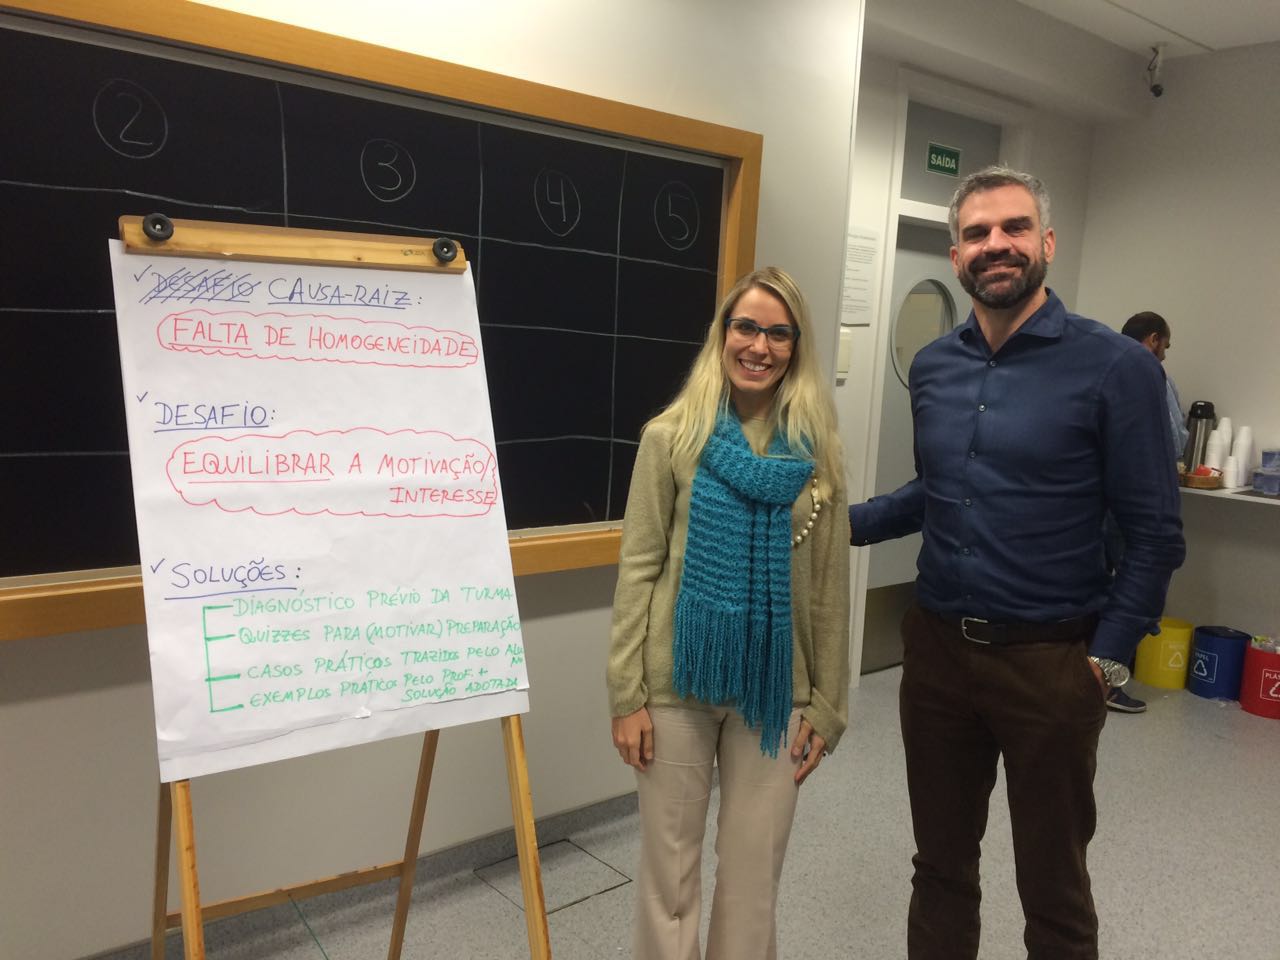 2
3
4
5
✓ DESAFIO CAUSA-RAIZ:
FALTA DE HOMOGENEIDADE
✓ DESAFIO:
EQUILIBRAR A MOTIVAÇÃO/
INTERESSE
✓ SOLUÇÕES:
DIAGNÓSTICO PRÉVIO DA TURMA
QUIZZES PARA (MOTIVAR) PREPARAÇÃO
CASOS PRÁTICOS TRAZIDOS PELO ALU
NO
EXEMPLOS PRÁTICOS PELO PROF. +
SOLUÇÃO ADOTADA
SAÍDA
PAPEL